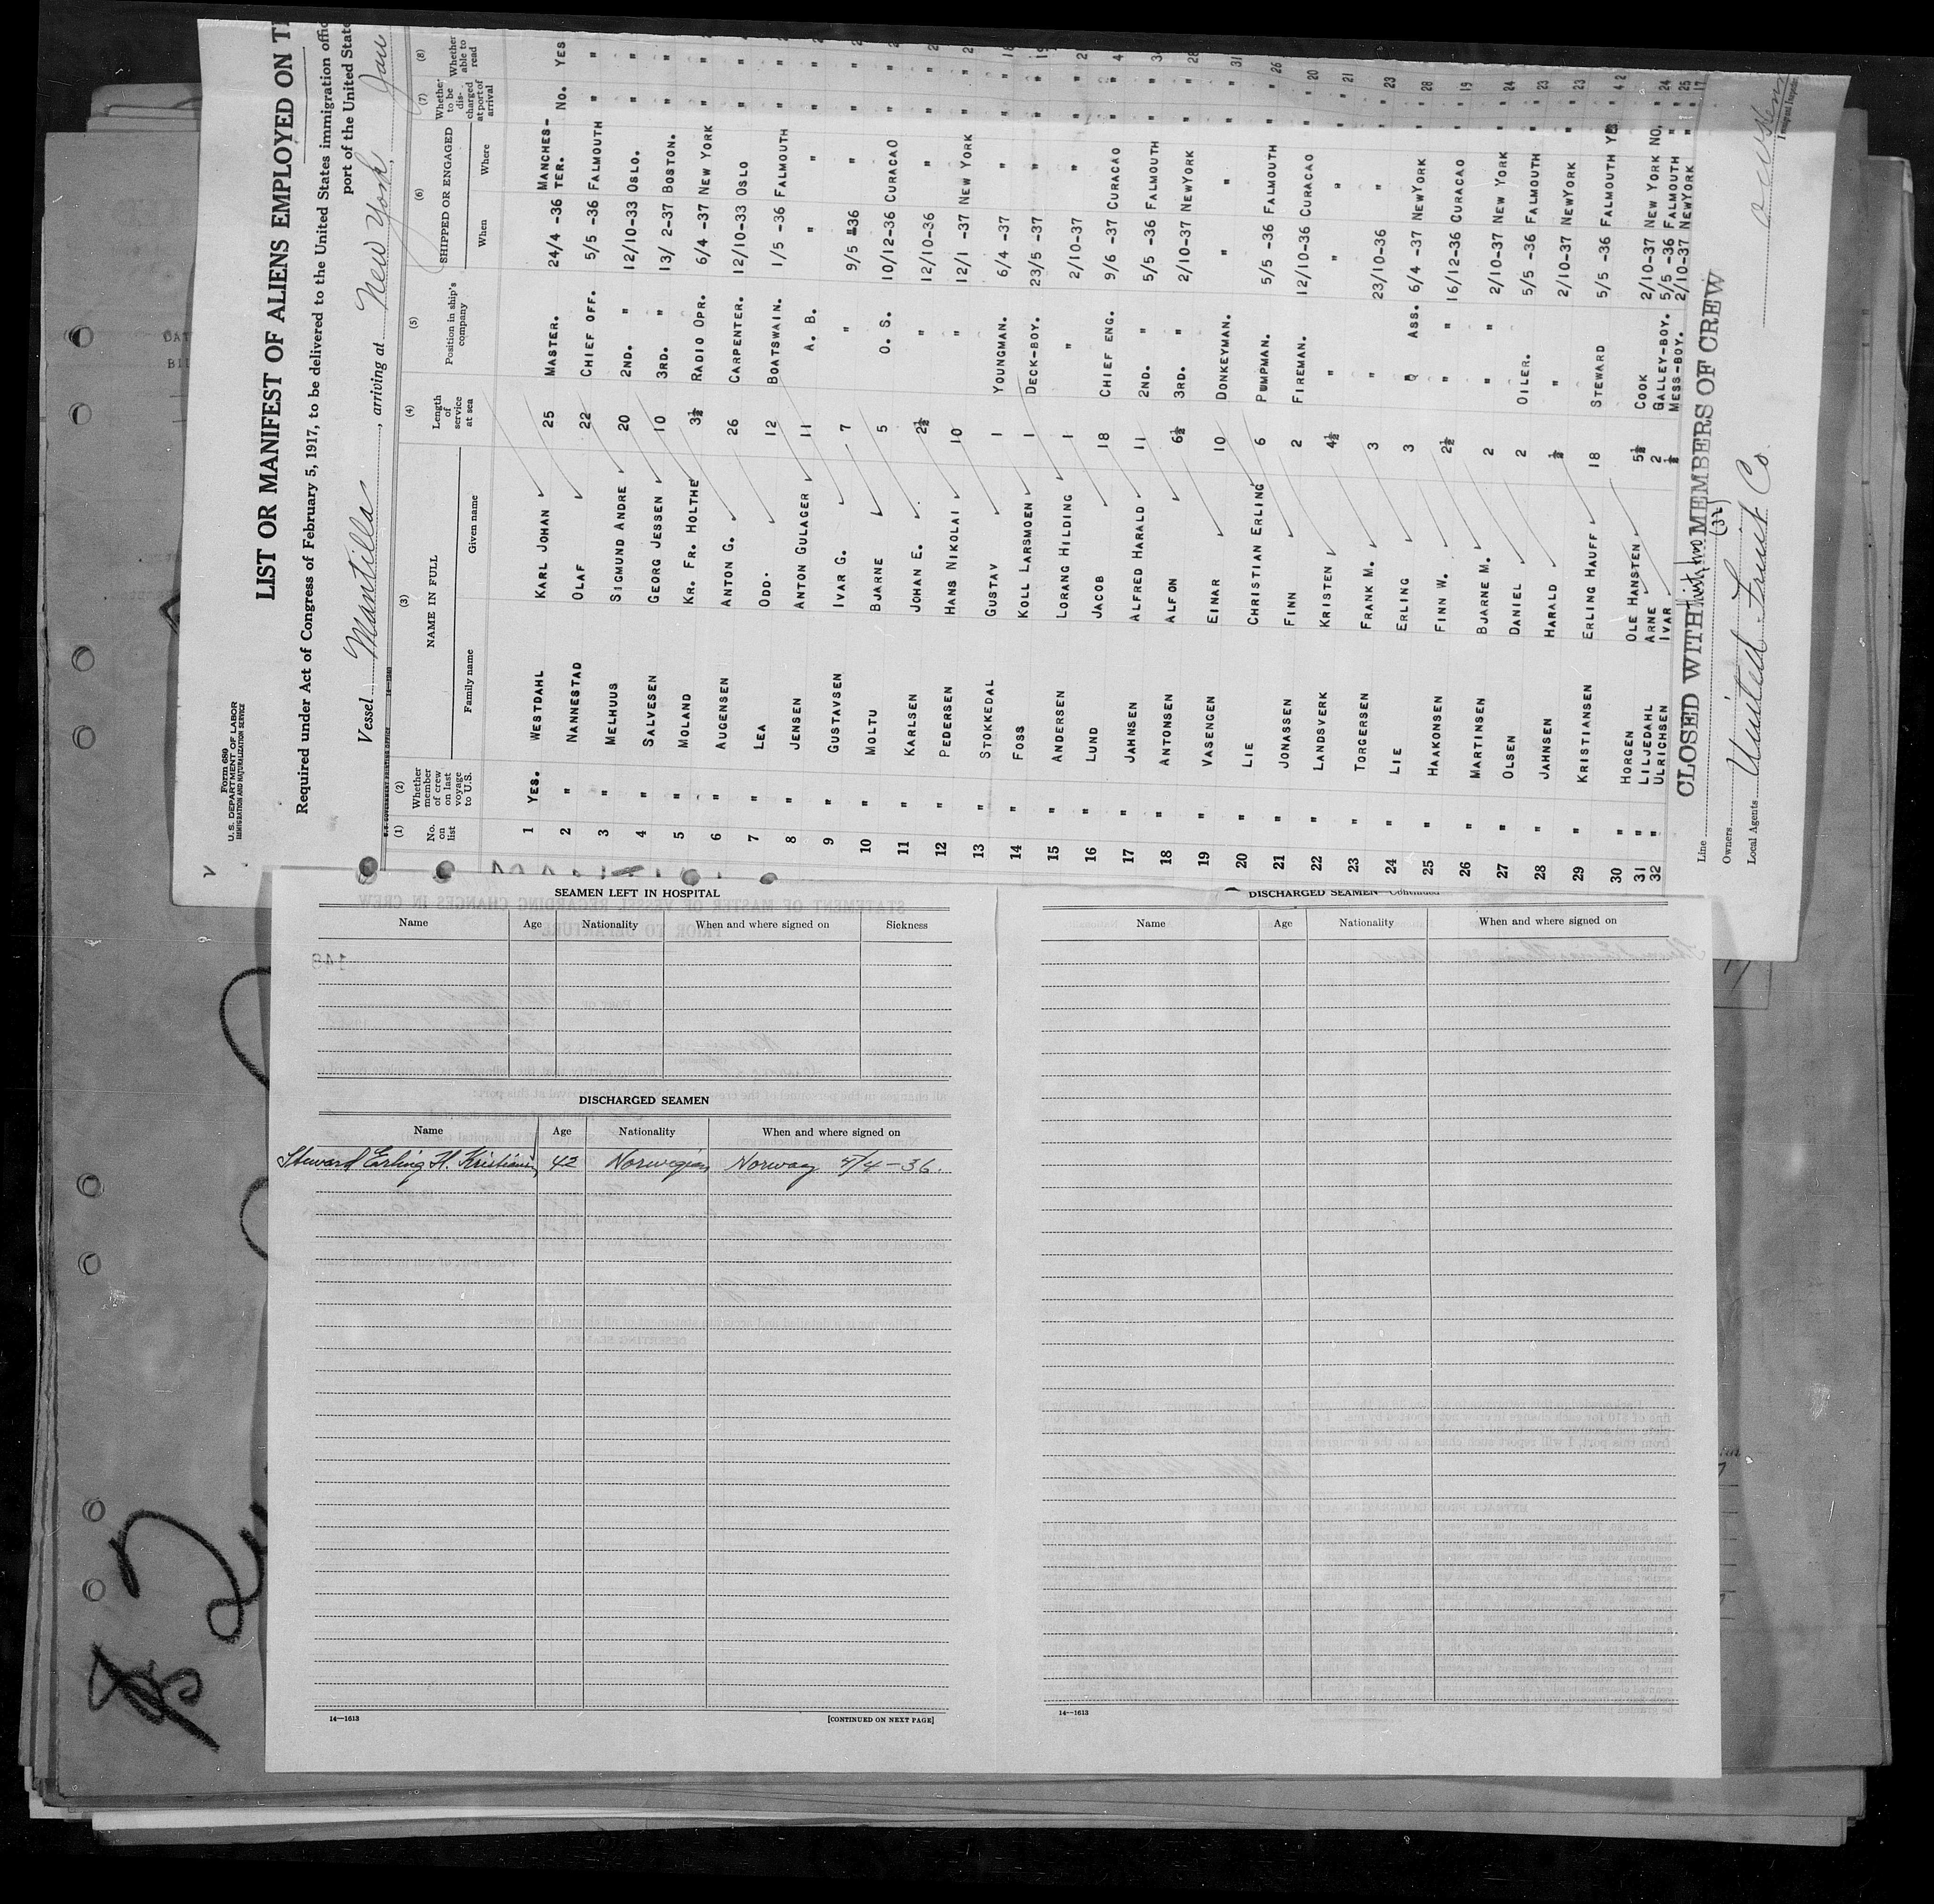 Form 689
U. S. DEPARTMENT OF LABOR
IMMIGRATION AND NATURALIZATION SERVICE
LIST OR MANIFEST OF ALIENS EMPLOYED ON
Required under Act of Congress of February 5, 1917, to be delivered to the United States immigration
port of the United
Vessel Mantilla, arriving at New York, Jan
U.S. GOVERNMENT PRINTING OFFICE
(1) (2) (3) (4) (5) (6) (7) (8)
No. on list Whether member of crew on last voyage to U.S. NAME IN FULL Family name Given name Length of service at sea Position in ship's company SHIPPED OR ENGAGED When Where Whether to be discharged at port of arrival Whether able to read
1 YES. WESTDAHL KARL JOHAN 25 MASTER. 24/4 -36 MANCHES-TER. NO. YES
2 " NANNESTAD OLAF 22 CHIEF OFF. 5/5 -36 FALMOUTH " "
3 " MELHUS SIGMUND ANDRE 20 2ND. " 12/10-33 OSLO. " "
4 " SALVESEN GEORG JESSEN 10 3RD. " 13/ 2-37 BOSTON. " "
5 " MOLAND KR. FR. HOLTHE 3½ RADIO OPR. 6/4 -37 NEW YORK " "
6 " AUGENSEN ANTON G. 26 CARPENTER. 12/10-33 OSLO " "
7 " LEA ODD. 12 BOATSWAIN. 1/5 -36 FALMOUTH " "
8 " JENSEN ANTON GULAGER 11 A. B. " " " "
9 " GUSTAVSEN IVAR G. 7 " 9/5 -36 " " "
10 " MOLTU BJARNE 5 O. S. 10/12-36 CURACAO " "
11 " KARLSEN JOHAN E. 2½ " 12/10-36 " " "
12 " PEDERSEN HANS NIKOLAI 10 " 12/1 -37 NEW YORK " "
13 " STOKKEDAL GUSTAV 1 YOUNGMAN. 6/4 -37 " " "
14 " FOSS KOLL LARSMOEN 1 DECK-BOY. 23/5 -37 " " "
15 " ANDERSEN LORANG HILDING 1 " 2/10-37 " " "
16 " LUND JACOB 18 CHIEF ENG. 9/6 -37 CURACAO " "
17 " JAHNSEN ALFRED HARALD 11 2ND. " 5/5 -36 FALMOUTH " "
18 " ANTONSEN ALFON 6½ 3RD. " 2/10-37 NEWYORK " "
19 " VASENGEN EINAR 10 DONKEYMAN. " " " " 31
20 " LIE CHRISTIAN ERLING 6 PUMPMAN. 5/5 -36 FALMOUTH " " 26
21 " JONASSEN FINN 2 FIREMAN. 12/10-36 CURACAO " " 20
22 " LANDSVERK KRISTEN 4½ " " " " " 21
23 " TORGERSEN FRANK M. 3 " 23/10-36 " " " 23
24 " LIE ERLING 3 ASS. 6/4 -37 NEWYORK " " 28
25 " HAAKONSEN FINN W. 2½ " " 16/12-36 CURACAO " " 19
26 " MARTINSEN BJARNE M. 2 " " 2/10-37 NEW YORK " " 24
27 " OLSEN DANIEL 2 OILER. 5/5 -36 FALMOUTH " " 23
28 " JAHNSEN HARALD ½ " 2/10-37 NEWYORK " " 23
29 " KRISTIANSEN ERLING HAUFF 18 STEWARD 5/5 -36 FALMOUTH YES " 42
30 " HORGEN OLE HANSTEN 5½ COOK 2/10-37 NEW YORK NO. " 24
31 " LILJEDAHL ARNE 2 GALLEY-BOY. 5/5 -36 FALMOUTH " " 25
32 " ULRICHSEN IVAR ½ MESS-BOY. 2/10-37 NEWYORK " " 17
CLOSED WITH thirty two MEMBERS OF CREW
(32)
Line
Owners
Local Agents United Fruit Co.
Immigrant Inspector
SEAMEN LEFT IN HOSPITAL
Name Age Nationality When and where signed on Sickness
DISCHARGED SEAMEN
Name Age Nationality When and where signed on
Steward Erling H. Kristiansen 42 Norwegian Norway 5/4-36.
14—1613 [CONTINUED ON NEXT PAGE]
DISCHARGED SEAMEN—Continued
Name Age Nationality When and where signed on
14—1613